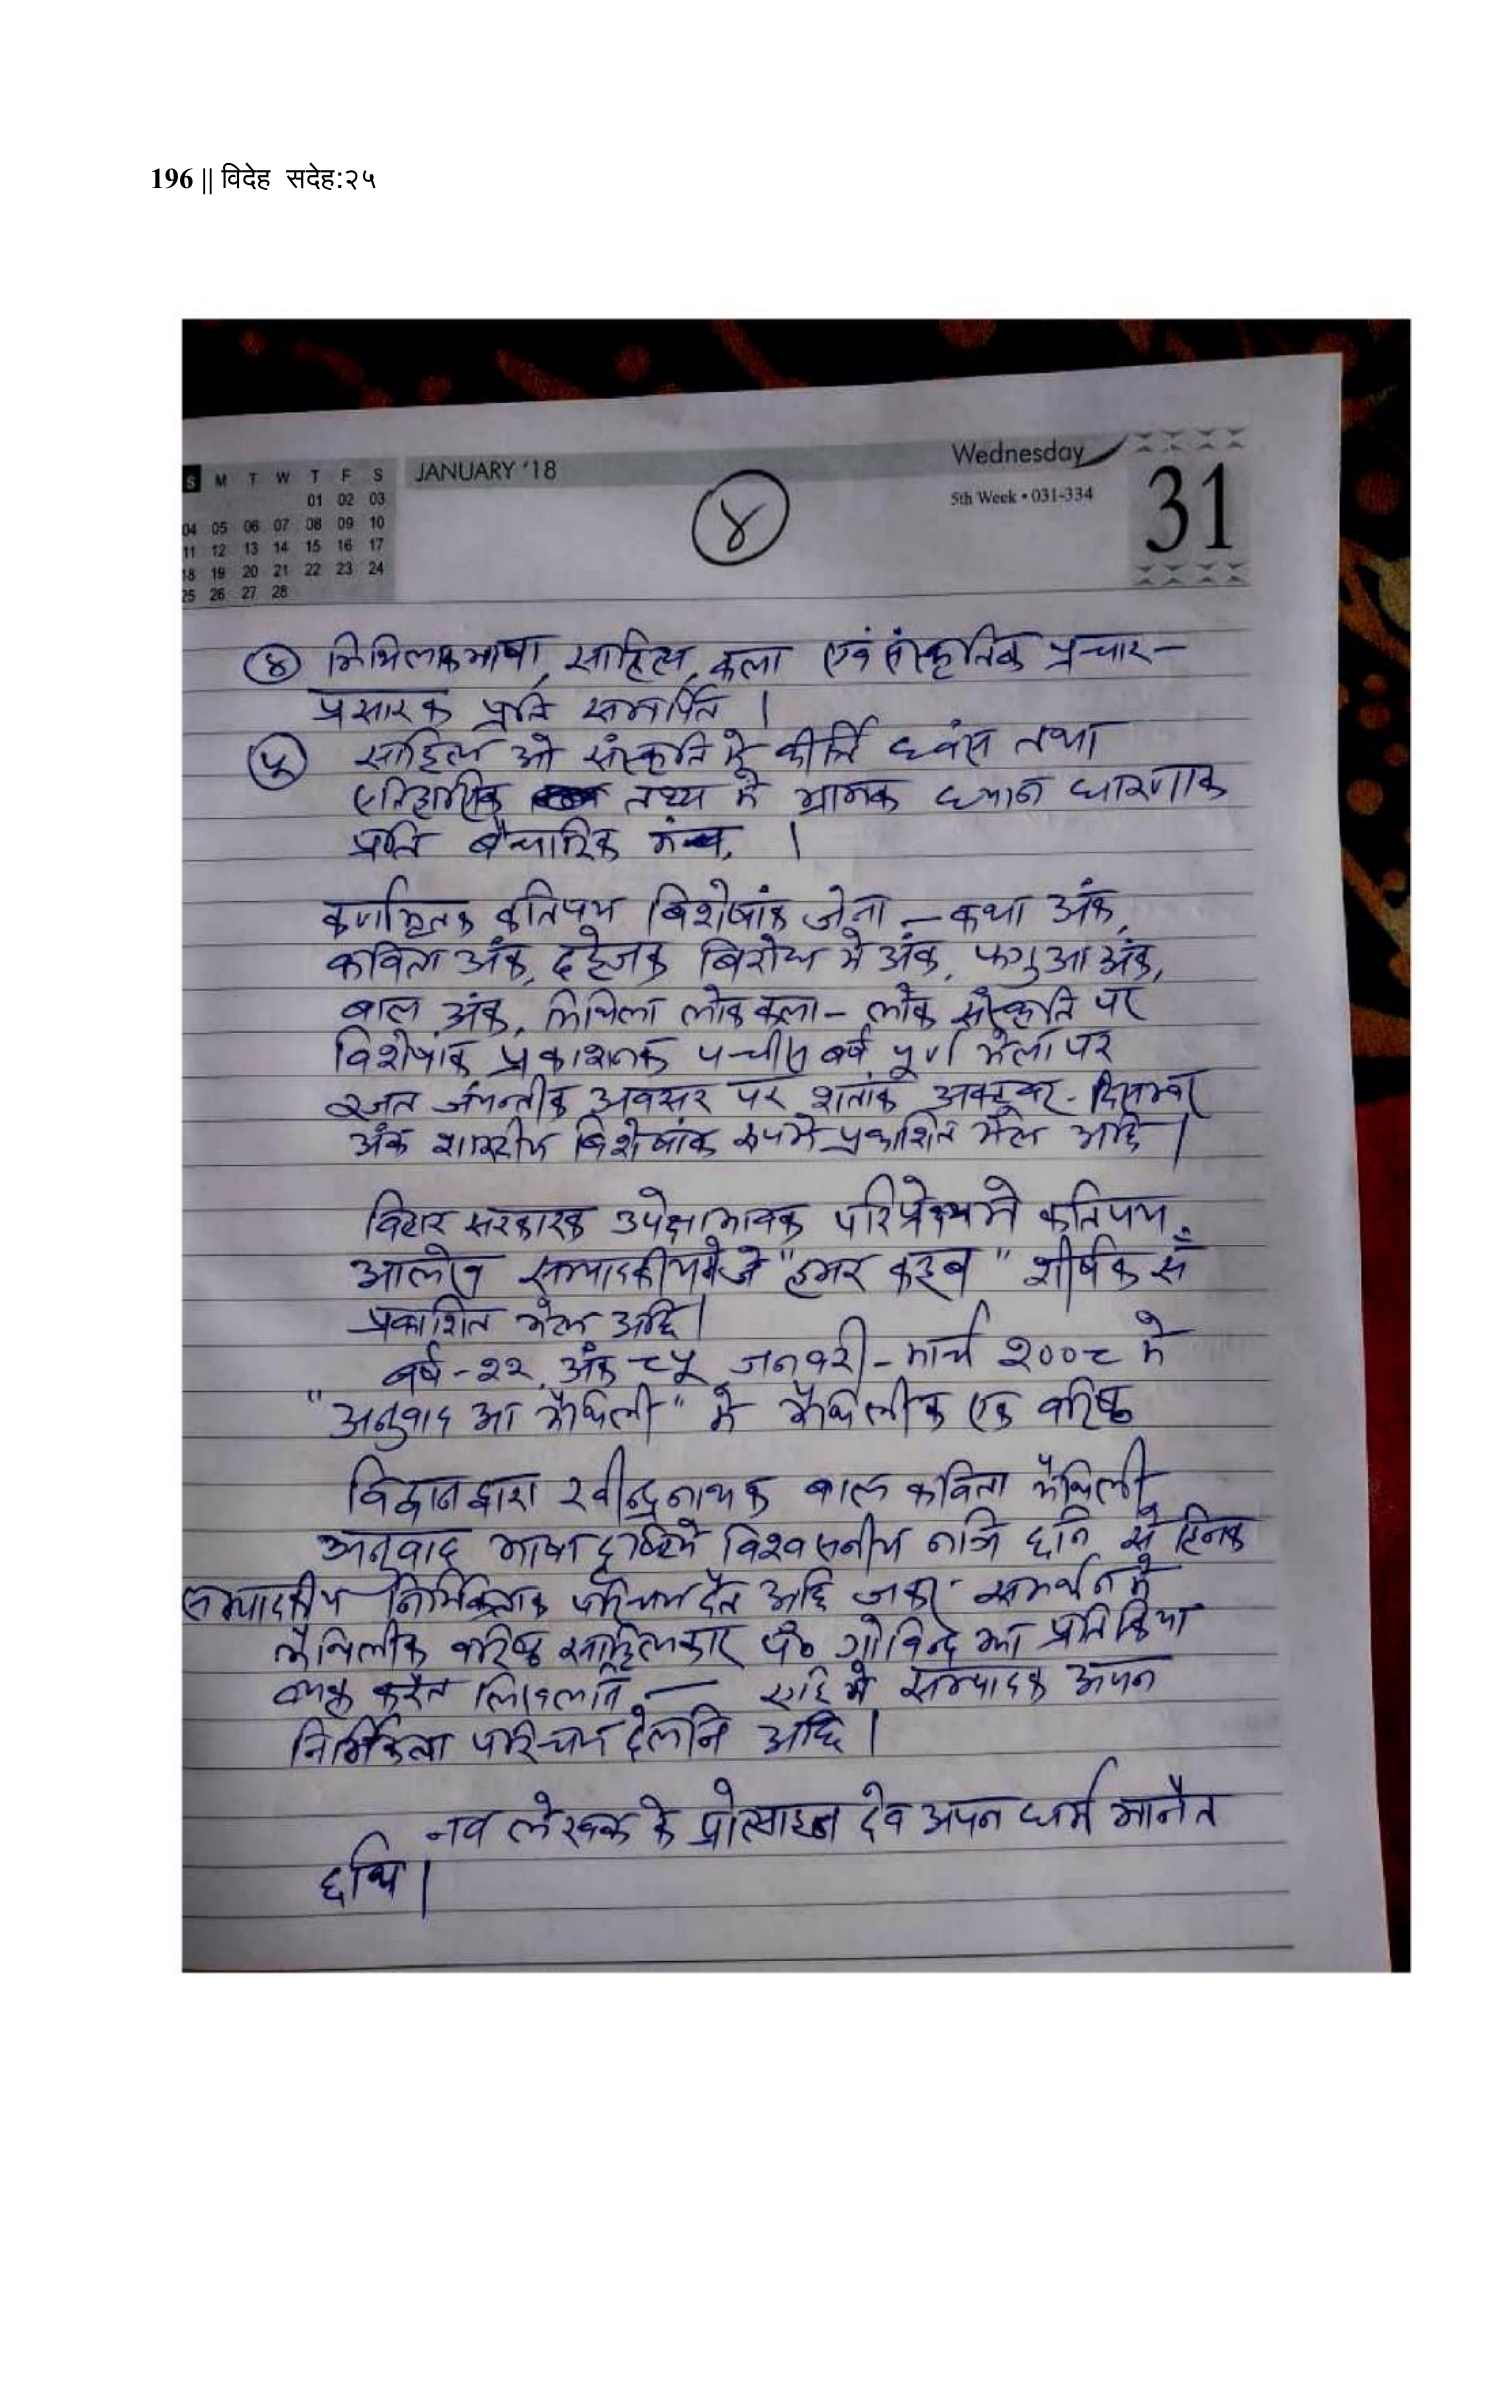 196 || विदेह सदेह:२५
S M T W T F S
JANUARY '18
Wednesday
01 02 03
5th Week • 031-334
31
04 05 06 07 08 09 10
11 12 13 14 15 16 17
18 19 20 21 22 23 24
25 26 27 28
४
४ मिथिलाक भाषा, साहित्य, कला एवं संस्कृतिक प्रचार-
प्रसारक प्रति समर्पित।
५ साहित्य ओ संस्कृति मे कीर्ति ध्वंस तथा
ऐतिहासिक तथ्य मे भ्रामक धारणाक
प्रति वैचारिक मंच।
कर्णामृतक कतिपय विशेषांक जेना - कथा अंक,
कविता अंक, दहेजक विरोध मे अंक, फगुआ अंक,
बाल अंक, मिथिला लोककला - लोक संस्कृति पर
विशेषांक प्रकाशनक पच्चीस बर्ष पूर्ण भेला पर
रजत जयन्तीक अवसर पर शतांक अक्टूबर - दिसम्बर
अंक विशेषांक रूपमे प्रकाशित भेल अछि।
बिहार सरकारक उपेक्षाभावक परिप्रेक्ष्यमे कतिपय
आलेख सम्पादकीयमे जे "हमर कहब" शीर्षक सँ
प्रकाशित भेल अछि।
बर्ष - २२, अंक ८५ जनवरी - मार्च २००८ मे
"अनुवाद आ मैथिली" मे मैथिलीक एक वरिष्ठ
विद्वान द्वारा रवीन्द्रनाथक बाल कविता मैथिली
अनुवाद भाषा दृष्टिमे विश्वसनीय नञि छनि से हिनक
सम्पादकीय निर्भिकताक परिचय दैत अछि जकर समर्थन मे
मैथिलीक वरिष्ठ साहित्यकार पं० गोविन्द झा प्रतिक्रिया
व्यक्त करैत लिखलनि — एहि मे सम्पादक अपन
निर्भिकता परिचय देलनि अछि।
नव लेखक के प्रोत्साहन देब अपन धर्म मानैत
छथि।